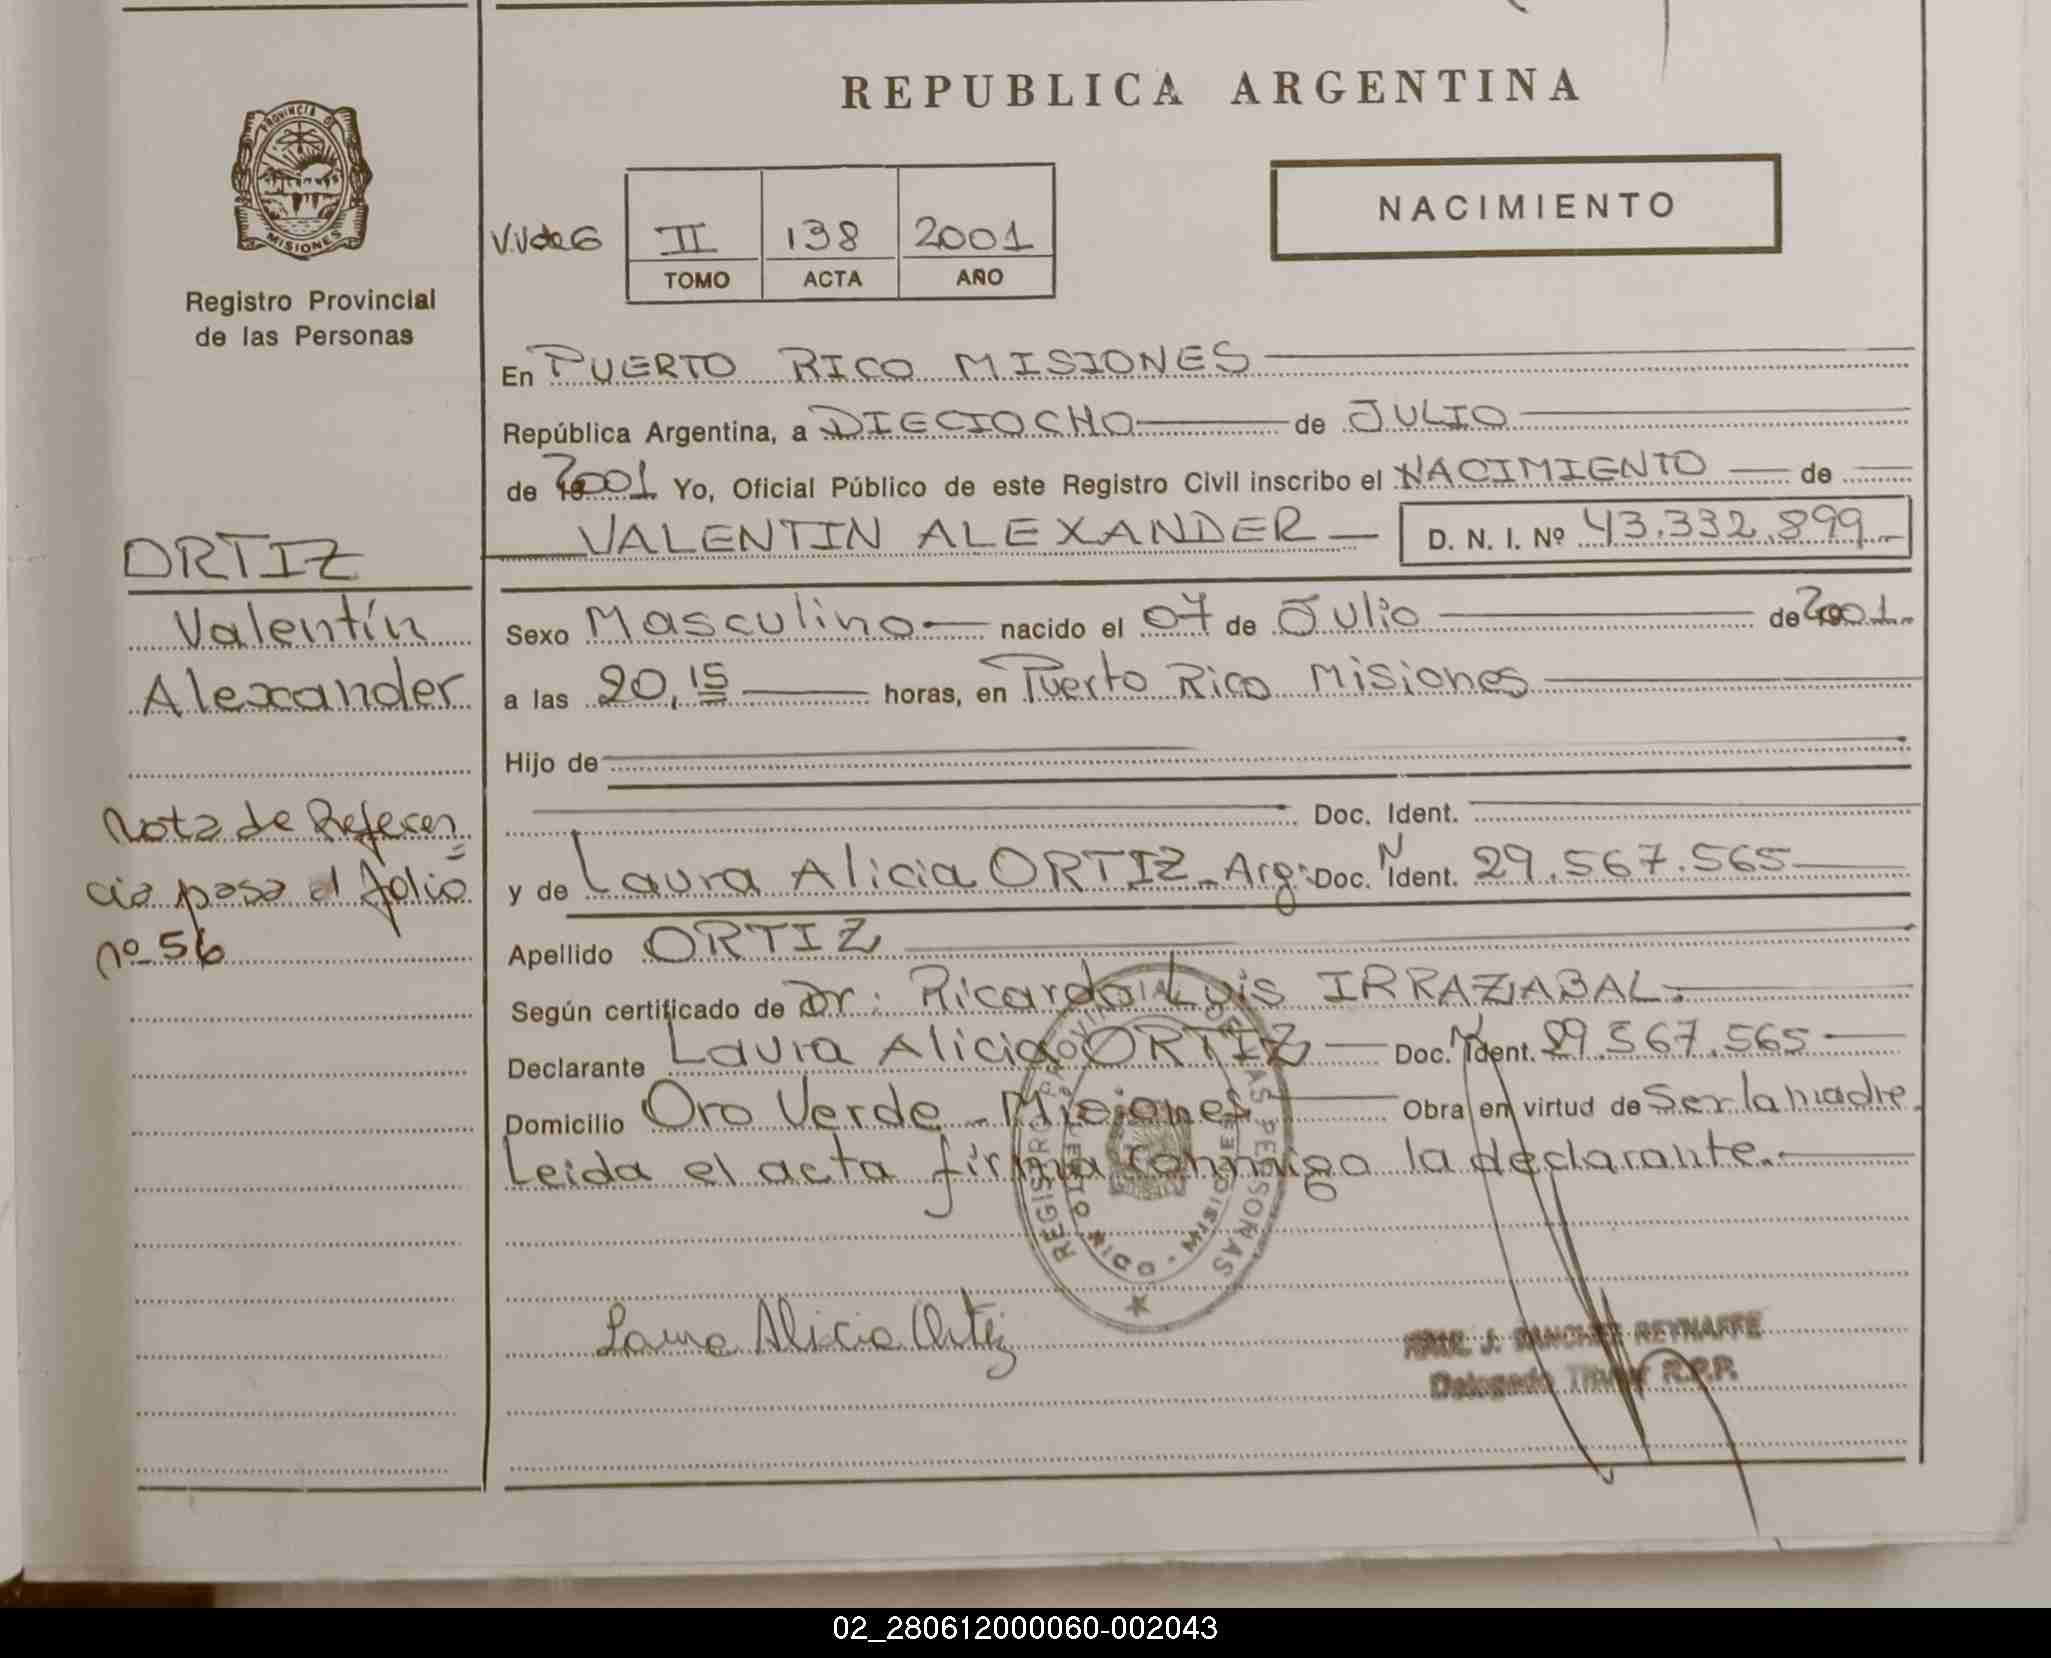 REPUBLICA ARGENTINA
PROVINCIA DE
MISIONES
Registro Provincial
de las Personas
NACIMIENTO
V.V de G
II 138 2001
TOMO ACTA AÑO
En PUERTO RICO MISIONES
República Argentina, a DIECIOCHO de JULIO
de 2001 Yo, Oficial Público de este Registro Civil inscribo el NACIMIENTO de
VALENTIN ALEXANDER D. N. I. Nº 43.332.899
ORTIZ
Valentín
Alexander
Sexo Masculino nacido el 07 de Julio de 2001
a las 20,15 horas, en Puerto Rico Misiones
Hijo de
Doc. Ident.
y de Laura Alicia ORTIZ - Arg: Doc. N Ident. 29.567.565
Nota de Referen
cia pasa al folio
nº 56
Apellido ORTIZ
Según certificado de Dr: Ricardo Luis IRRAZABAL.
Declarante Laura Alicia ORTIZ Doc. N Ident. 29.567.565
Domicilio Oro Verde - Misiones Obra en virtud de Ser la madre.
Leida el acta firma conmigo la declarante.
REGISTRO PROVINCIAL DE LAS PERSONAS
MISIONES
Laura Alicia Ortiz
J. SANCHEZ REYNAFFE
Delegado Titular R.P.P.
02_280612000060-002043